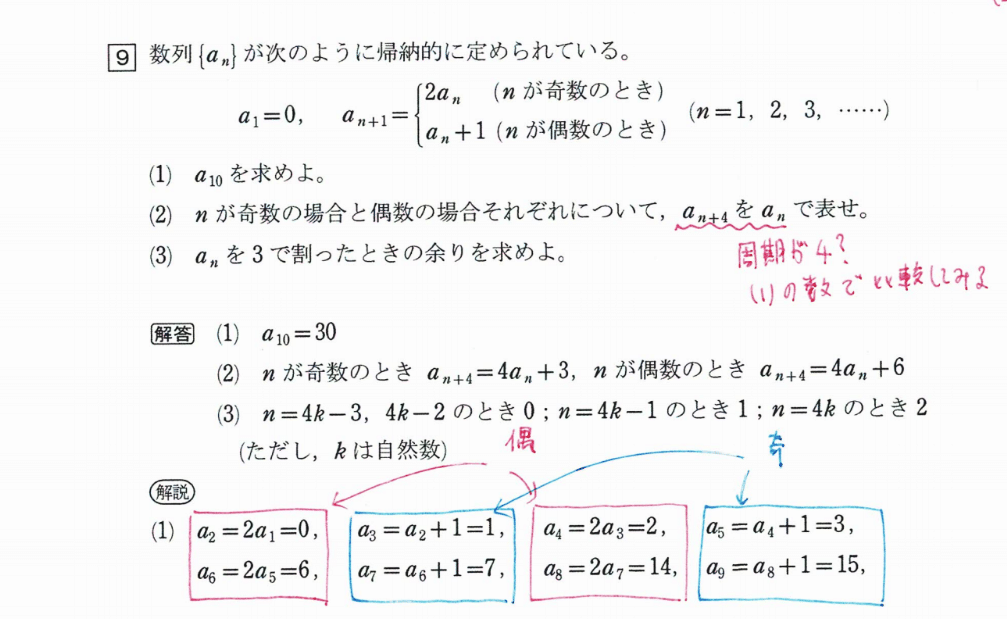 9 数列{aₙ}が次のように帰納的に定められている。
a₁=0, aₙ₊₁={2aₙ (nが奇数のとき) aₙ+1 (nが偶数のとき) (n=1, 2, 3, ……)
(1) a₁₀を求めよ。
(2) nが奇数の場合と偶数の場合それぞれについて, aₙ₊₄をaₙで表せ。
(3) aₙを3で割ったときの余りを求めよ。
周期が4?
(1)の数で比較してみる
解答 (1) a₁₀=30
(2) nが奇数のとき aₙ₊₄=4aₙ+3, nが偶数のとき aₙ₊₄=4aₙ+6
(3) n=4k-3, 4k-2のとき0;n=4k-1のとき1;n=4kのとき2
(ただし, kは自然数)
偶 奇
解説
(1) a₂=2a₁=0, a₃=a₂+1=1, a₄=2a₃=2, a₅=a₄+1=3,
a₆=2a₅=6, a₇=a₆+1=7, a₈=2a₇=14, a₉=a₈+1=15,